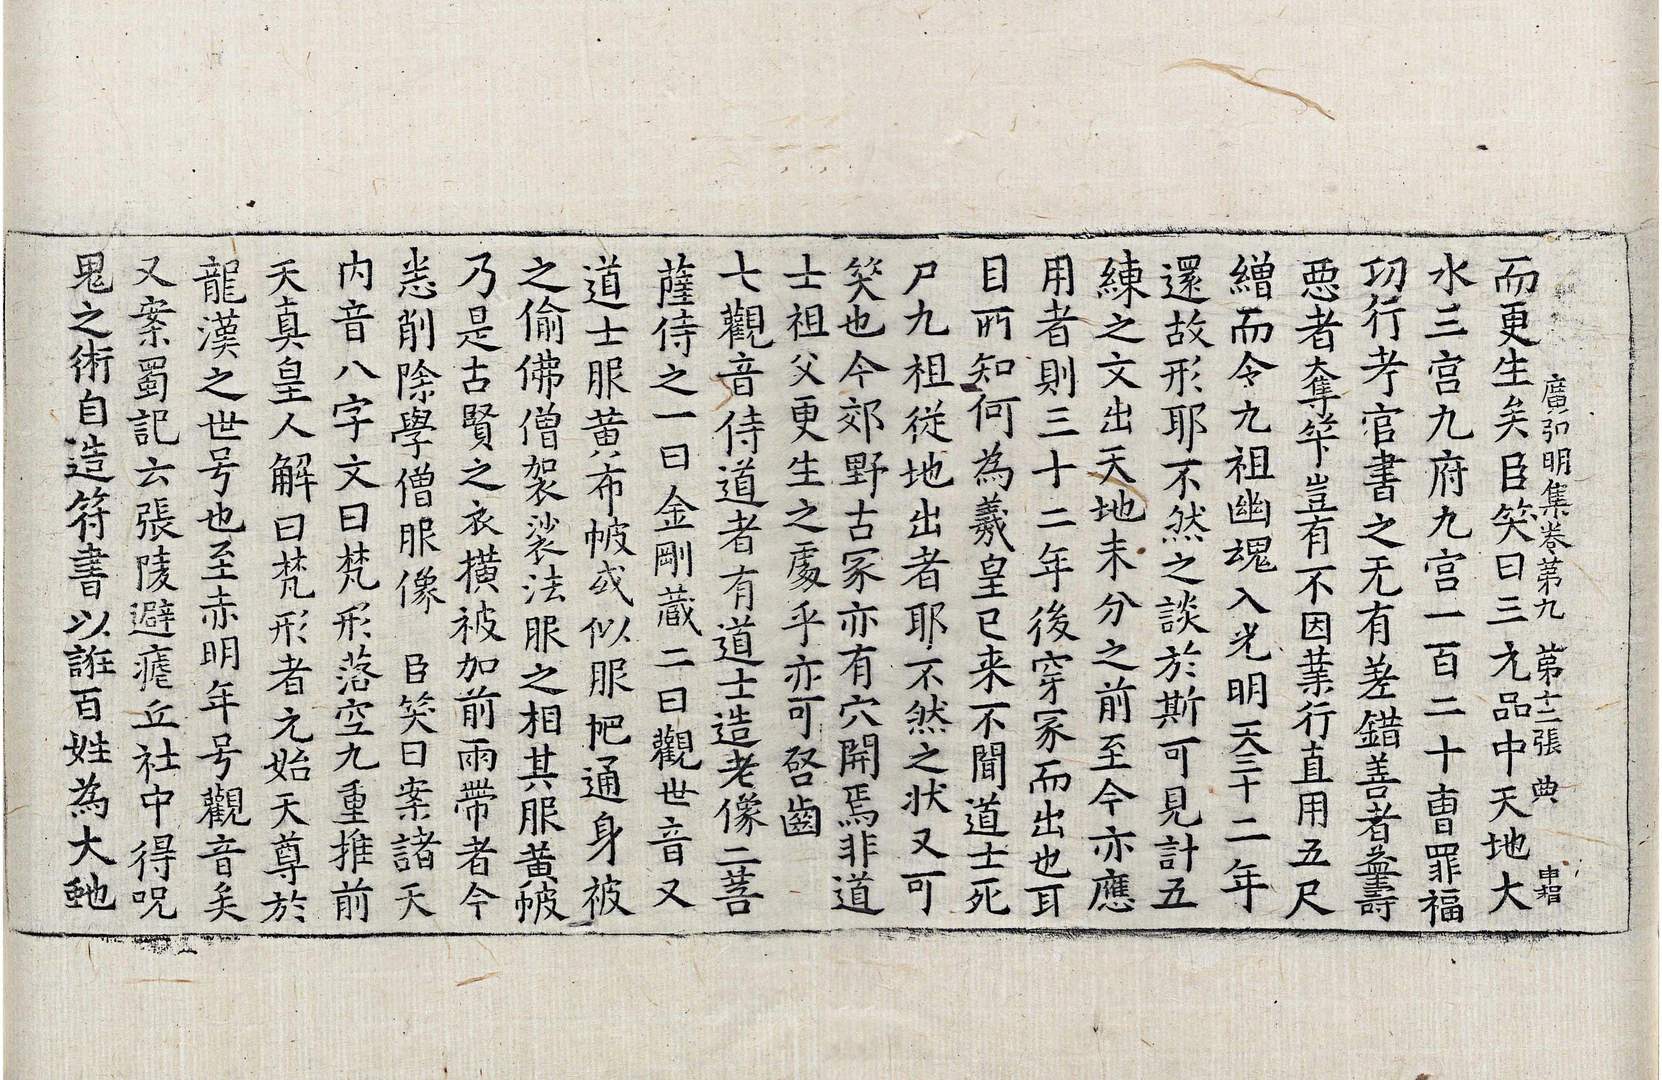 廣弘明集卷第九 第十二張 典 申塭
而更生矣臣笑曰三元品中天地大
水三宫九府九宫一百二十曺罪福
㓛行考官書之无有差錯善者益壽
悪者奪筭豈有不因業行直用五尺
繒而令九祖幽魂入光明天三十二年
還故形耶不然之談於斯可見計五
練之文出天地未分之前至今亦應
用者則三十二年後穿冢而出也耳
目所知何為羲皇已来不聞道士死
尸九祖從地出者耶不然之状又可
笑也今郊野古冢亦有穴開焉非道
士祖父更生之處乎亦可啓齒
七觀音侍道者有道士造老像二菩
薩侍之一曰金剛藏二曰觀世音又
道士服黄布帔或似服帊通身被
之偷佛僧袈裟法服之相其服黄帔
乃是古賢之衣横被加前兩帶者今
悉削除學僧服像 臣笑曰案諸天
内音八字文曰梵形落空九重推前
天真皇人解曰梵形者元始天尊於
龍漢之世号也至赤明年号觀音矣
又案蜀記云張陵避瘧丘社中得呪
鬼之術自造符書以誑百姓為大虵